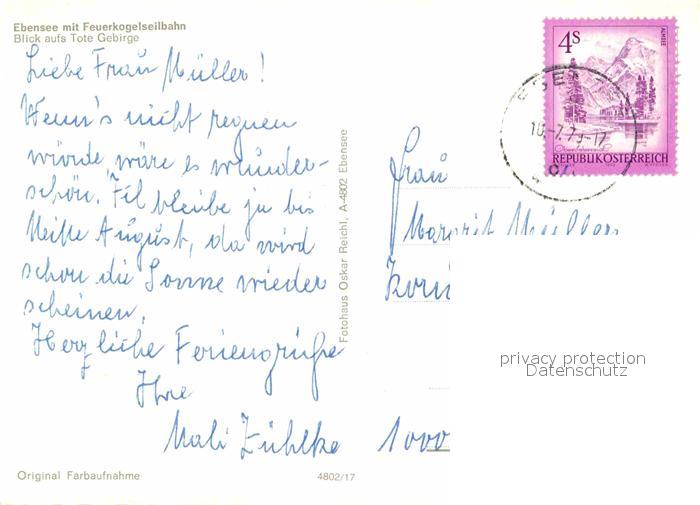 Ebensee mit Feuerkogelseilbahn
Blick aufs Tote Gebirge
Liebe Frau Müller!
Wenn's nicht regnen
würde wäre es wunder-
schön. Ich bleibe ja bis
Mitte August, da wird
schon die Sonne wieder
scheinen.
Herzliche Feriengrüße
Ihre
Mali Zühlke
Original Farbaufnahme
4802/17
Fotohaus Oskar Reichl, A-4802 Ebensee
4 S
ALMSEE
REPUBLIK ÖSTERREICH
Frau
Margrit Müller
1000
privacy protection
Datenschutz